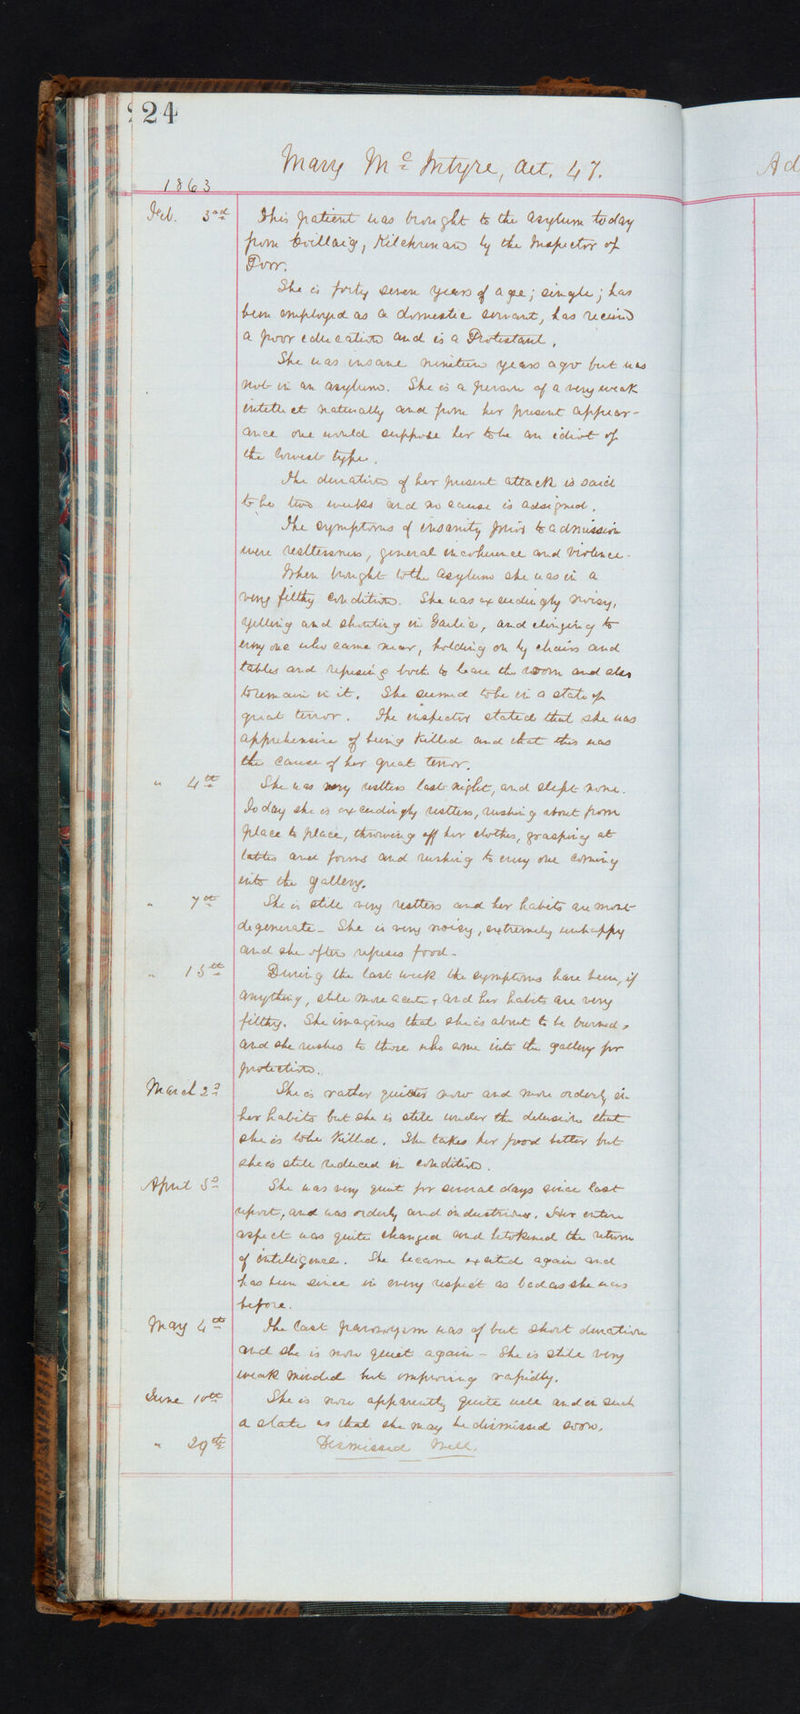 224
Mary McIntyre, aet. 47.
Ad
1863
Feb. 3rd This patient was brought to the asylum today
from Coillaig, Kilchrenan by the Inspector of
Poor.
She is forty seven years of age; single; has
been employed as a domestic servant, has received
a poor education and is a Protestant.
She was insane nineteen years ago but was
not in an asylum. She is a person of a very weak
intellect naturally and from her present appear-
ance one would suppose her to be an idiot of
the lowest type.
The duration of her present attack is said
to be two weeks and no cause is assigned.
The symptoms of insanity prior to admission
were restlessness, general incoherence and violence.
When brought to the asylum she was in a
very filthy condition. She was exceedingly noisy,
yelling and shouting in Gaelic, and clinging to
every one who came near, holding on by chairs and
tables and refusing both to leave the room and also
to remain in it. She seemed to be in a state of
great terror. The inspector stated that she was
apprehensive of being killed and that this was
the cause of her great terror.
" 4th She was very restless last night, and slept none.
Today she is exceedingly restless, rushing about from
place to place, throwing off her clothes, grasping at
tables and forms and rushing to every one coming
into the gallery.
" 7th She is still very restless and her habits are most
degenerate - She is very noisy, extremely unhappy
and she often refuses food -
" 15th During the last week the symptoms have been, if
anything, still more acute, and her habits are very
filthy. She imagines that she is about to be burned,
and she rushes to those who come into the gallery for
protection.
March 2d She is rather quieter now and more orderly in
her habits but she is still under the delusion that
she is to be killed. She takes her food better but
she is still reduced in condition.
April 5th She was very quiet for several days since last
report, and was orderly and industrious. Her entire
aspect was quite changed and betokened the return
of intelligence. She became excited again and
has been since in every respect as bad as she was
before.
May 4th The last paroxysm was of but short duration
and she is now quiet again - She is still very
weak minded but improving rapidly.
June 10th She is now apparently quite well and in such
a state as that she may be dismissed soon.
" 29th Dismissed Well.